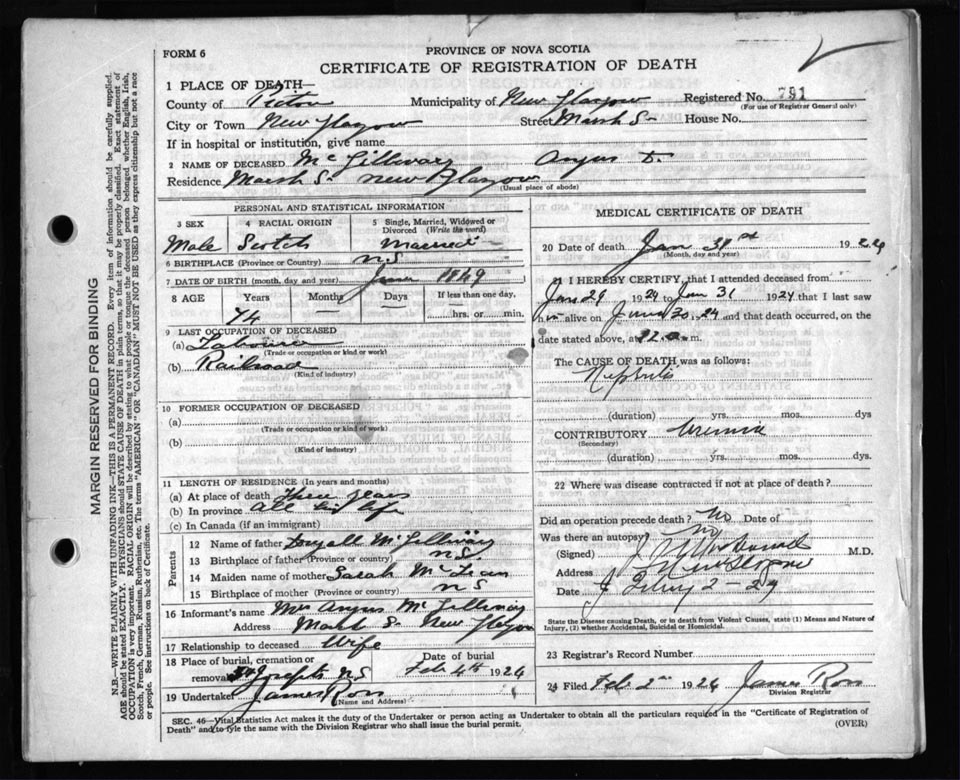 PROVINCE OF NOVA SCOTIA
FORM 6
CERTIFICATE OF REGISTRATION OF DEATH
1 PLACE OF DEATH—
County of Pictou Municipality of New Glasgow Registered No. 791
(For use of Registrar General only)
City or Town New Glasgow Street Marsh S— House No.
If in hospital or institution, give name
2 NAME OF DECEASED McGillivary Angus D.
Residence Marsh S— New Glasgow
(Usual place of abode)
PERSONAL AND STATISTICAL INFORMATION
3 SEX Male
4 RACIAL ORIGIN Scotch
5 Single, Married, Widowed or Divorced (Write the word) Married
6 BIRTHPLACE (Province or Country) N.S
7 DATE OF BIRTH (month, day and year) June 1849
8 AGE Years Months Days If less than one day,
74 hrs. or min.
9 LAST OCCUPATION OF DECEASED
(a) Labourer
(Trade or occupation or kind or work)
(b) Railroad
(Kind of industry)
10 FORMER OCCUPATION OF DECEASED
(a)
(Trade or occupation or kind of work)
(b)
(Kind of industry)
11 LENGTH OF RESIDENCE (In years and months)
(a) At place of death Three years
(b) In province all his life
(c) In Canada (if an immigrant)
Parents
12 Name of father McGillivary
13 Birthplace of father (Province or country) N S
14 Maiden name of mother Sarah McLean
15 Birthplace of mother (Province or country) N S
16 Informant's name Mrs Angus McGillivary
Address Marsh S. New Glasgow
17 Relationship to deceased Wife
18 Place of burial, cremation or removal St Josephs N.S Date of burial Feb 4th 1924
19 Undertaker James Ross
(Name and Address)
MEDICAL CERTIFICATE OF DEATH
20 Date of death Jan 31st 1924
(Month, day and year)
21 I HEREBY CERTIFY, that I attended deceased from
Jan 29 1924 to Jan 31 1924 that I last saw
him alive on 30 1924 and that death occurred, on
date stated above, at 12 a. m.
The CAUSE OF DEATH was as follows:
Nephritis
(duration) yrs. mos. dys
CONTRIBUTORY Uremia
(Secondary)
(duration) yrs. mos. dys.
22 Where was disease contracted if not at place of death?
Did an operation precede death? No Date of
Was there an autopsy? No
(Signed) M.D.
Address New Glasgow
Date 2 — 24
State the Disease causing Death, or in death from Violent Causes, state (1) Means and Nature of Injury, (2) whether Accidental, Suicidal or Homicidal.
23 Registrar's Record Number
24 Filed Feb 2nd 1924 James Ross
Division Registrar
SEC. 46—Vital Statistics Act makes it the duty of the Undertaker or person acting as Undertaker to obtain all the particulars required in the "Certificate of Registration of
Death" and to fyle the same with the Division Registrar who shall issue the burial permit. (OVER)
MARGIN RESERVED FOR BINDING
N.B.—WRITE PLAINLY WITH UNFADING INK—THIS IS A PERMANENT RECORD. Every item of information should be carefully supplied.
AGE should be stated EXACTLY. PHYSICIANS should STATE CAUSE OF DEATH in plain terms, so that it may be properly classified. Exact statement of
OCCUPATION is very important. RACIAL ORIGIN will be described by stating to what people or tongue the deceased person belonged, whether English, Irish,
Scotch, French, German, Russian, Ruthenian, etc. The terms "AMERICAN" or "CANADIAN" MUST NOT BE USED as they express citizenship but not a race
or people. See instructions on back of Certificate.